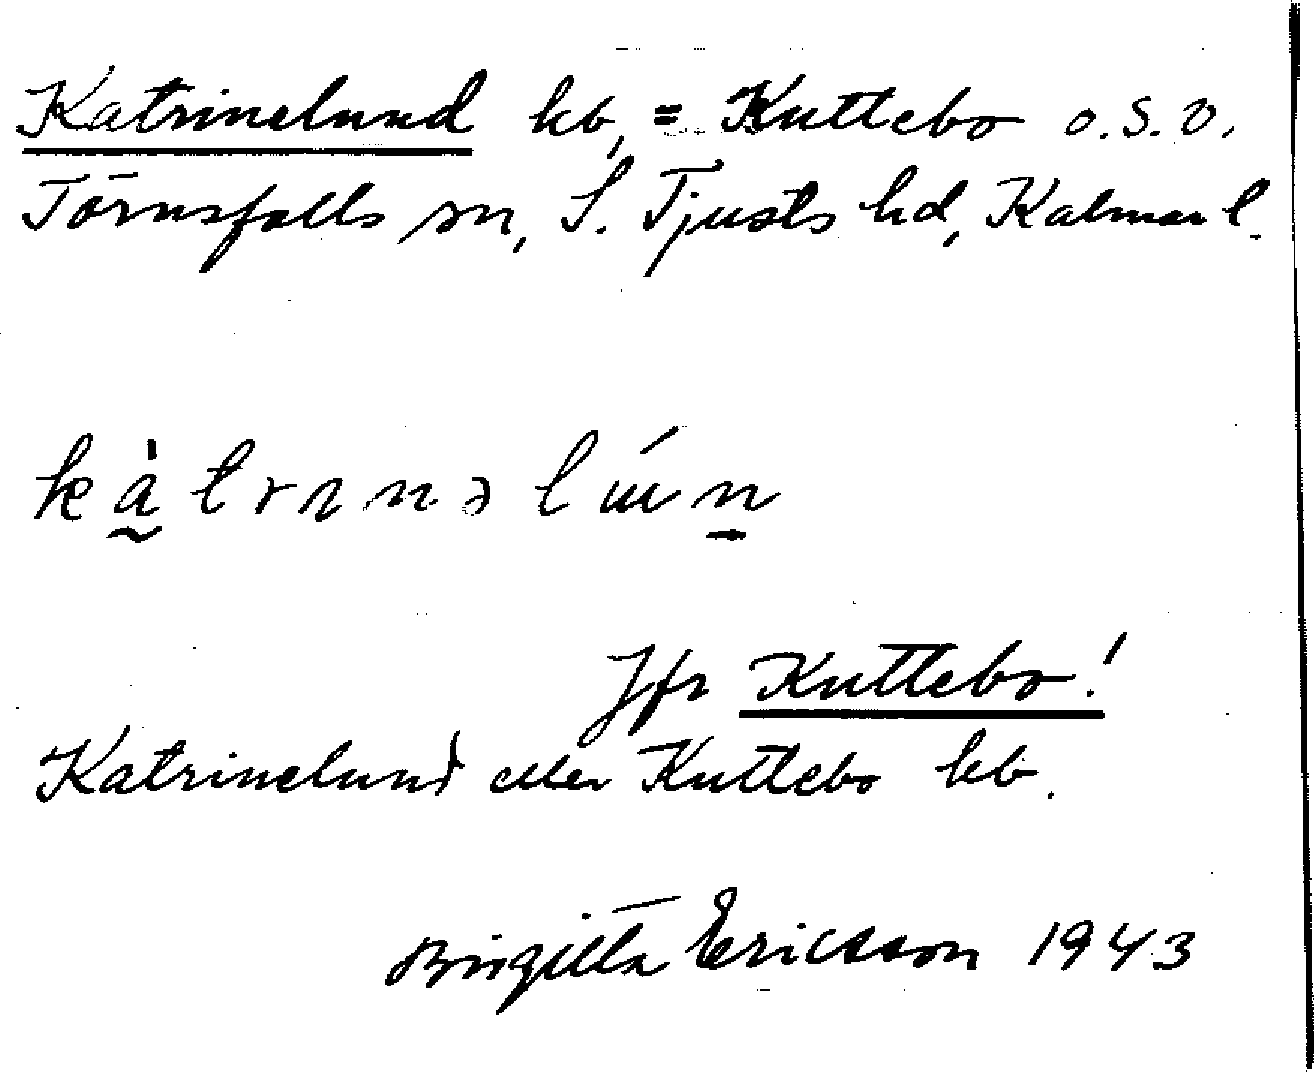 Katrinelund kb, = Kuttebo o.s.v.
Törnsfalls sn, S. Tjusts hd, Kalmar l.
Jfr Kuttebo!
Katrinelund eller Kuttebo kb.
Birgitta Ericsson 1943